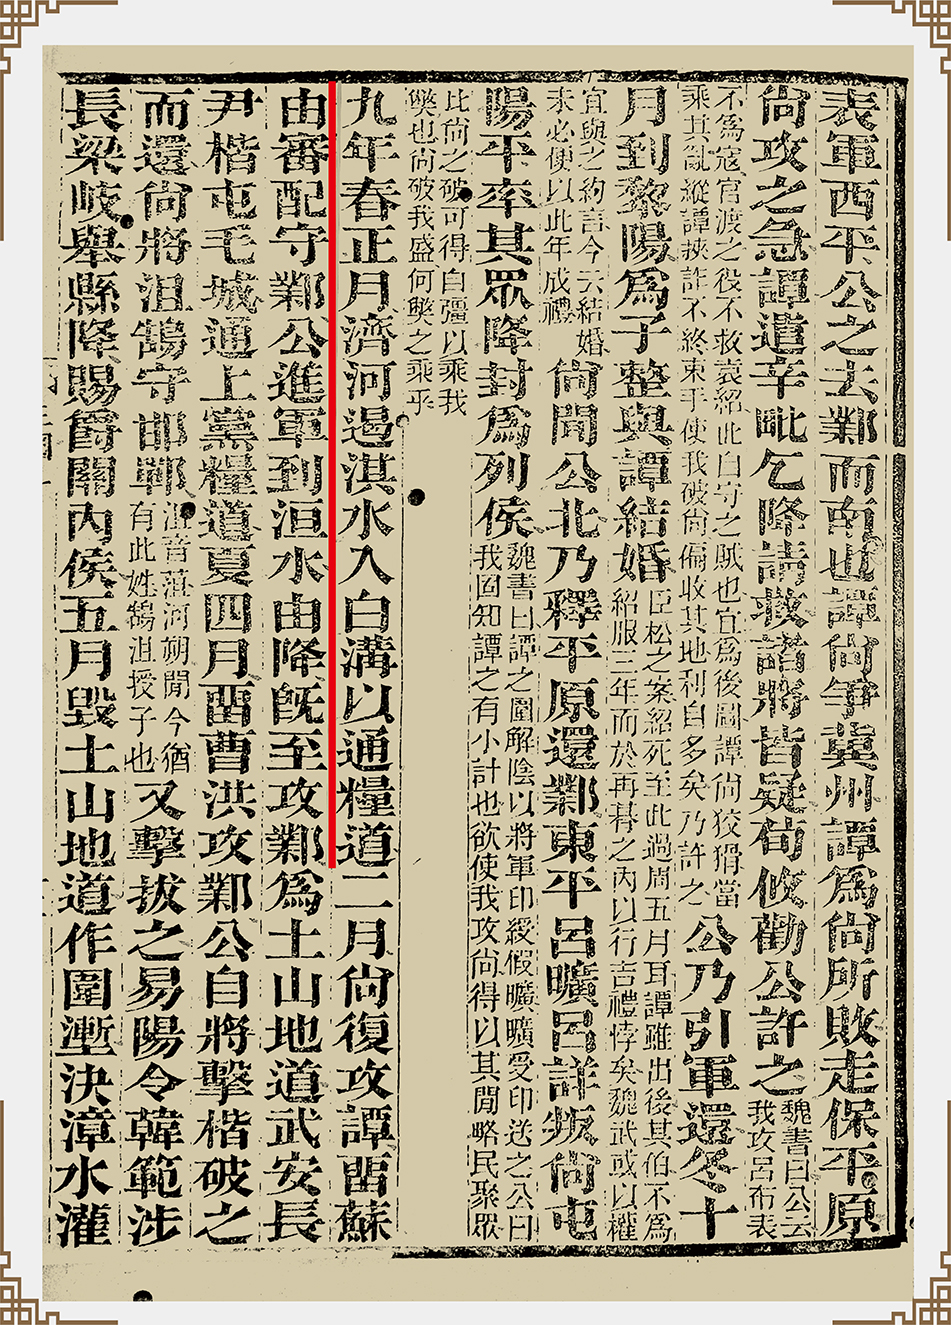 表軍西平公之去鄴而南也譚尚爭冀州譚爲尚所敗走保平原
尚攻之急譚遣辛毗乞降請救諸將皆疑荀攸勸公許之
魏書曰公云
我攻呂布表
不爲寇官渡之役不救袁紹此自守之賊也宜爲後圖譚尚狡猾當
乘其亂縱譚挾詐不終束手使我破尚偏收其地利自多矣乃許之
公乃引軍還冬十
月到黎陽爲子整與譚結婚
臣松之案紹死至此過周五月耳譚雖出後其伯不爲
紹服三年而於再朞之內以行吉禮悖矣魏武或以權
宜與之約言今云結婚
未必便以此年成禮
尚聞公北乃釋平原還鄴東平呂曠呂詳叛尚屯
陽平率其眾降封爲列侯
魏書曰譚之圍解陰以將軍印綬假曠曠受印送之公曰
我固知譚之有小計也欲使我攻尚得以其閒略民聚眾
比尚之破可得自彊以乘我
獘也尚破我盛何獘之乘乎
九年春正月濟河遏淇水入白溝以通糧道二月尚復攻譚畱蘇
由審配守鄴公進軍到洹水由降旣至攻鄴爲土山地道武安長
尹楷屯毛城通上黨糧道夏四月畱曹洪攻鄴公自將擊楷破之
而還尚將沮鵠守邯鄲
沮音菹河朔閒今猶
有此姓鵠沮授子也
又擊拔之易陽令韓範涉
長梁岐舉縣降賜爵關內侯五月毀土山地道作圍壍決漳水灌